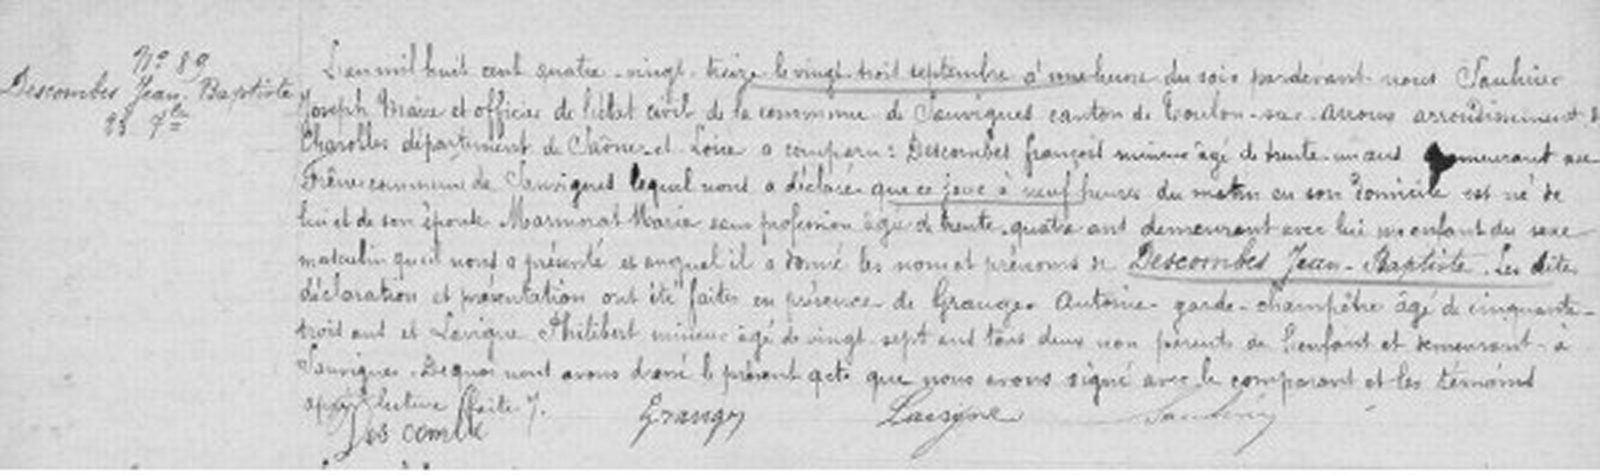 N° 89
Descombes Jean-Baptiste
23 7bre
L'an mil huit cent quatre-vingt-treize le vingt-trois septembre à une heure du soir par devant nous Saulnier
Joseph Maire et officier de l'état civil de la commune de Sanvignes canton de Toulon-sur-Arroux arrondissement de
Charolles département de Saône-et-Loire a comparu: Descombes françois mineur âgé de trente-un ans demeurant au
Frêne commune de Sanvignes lequel nous a déclaré que ce jour à neuf heures du matin en son domicile est né de
lui et de son épouse Marmorat Marie sans profession âgée de trente-quatre ans demeurant avec lui un enfant du sexe
masculin qu'il nous a présenté et auquel il a donné les nom et prénoms de Descombes Jean-Baptiste. Les dites
déclaration et présentation ont été faites en présence de Granger Antoine garde-champêtre âgé de cinquante-
trois ans et Lavigne Philibert mineur âgé de vingt-sept ans tous deux non parents de l'enfant et demeurant à
Sanvignes. De quoi nous avons dressé le présent acte que nous avons signé avec le comparant et les témoins
après lecture faite.
Descombe Granger Lavigne Saulnier